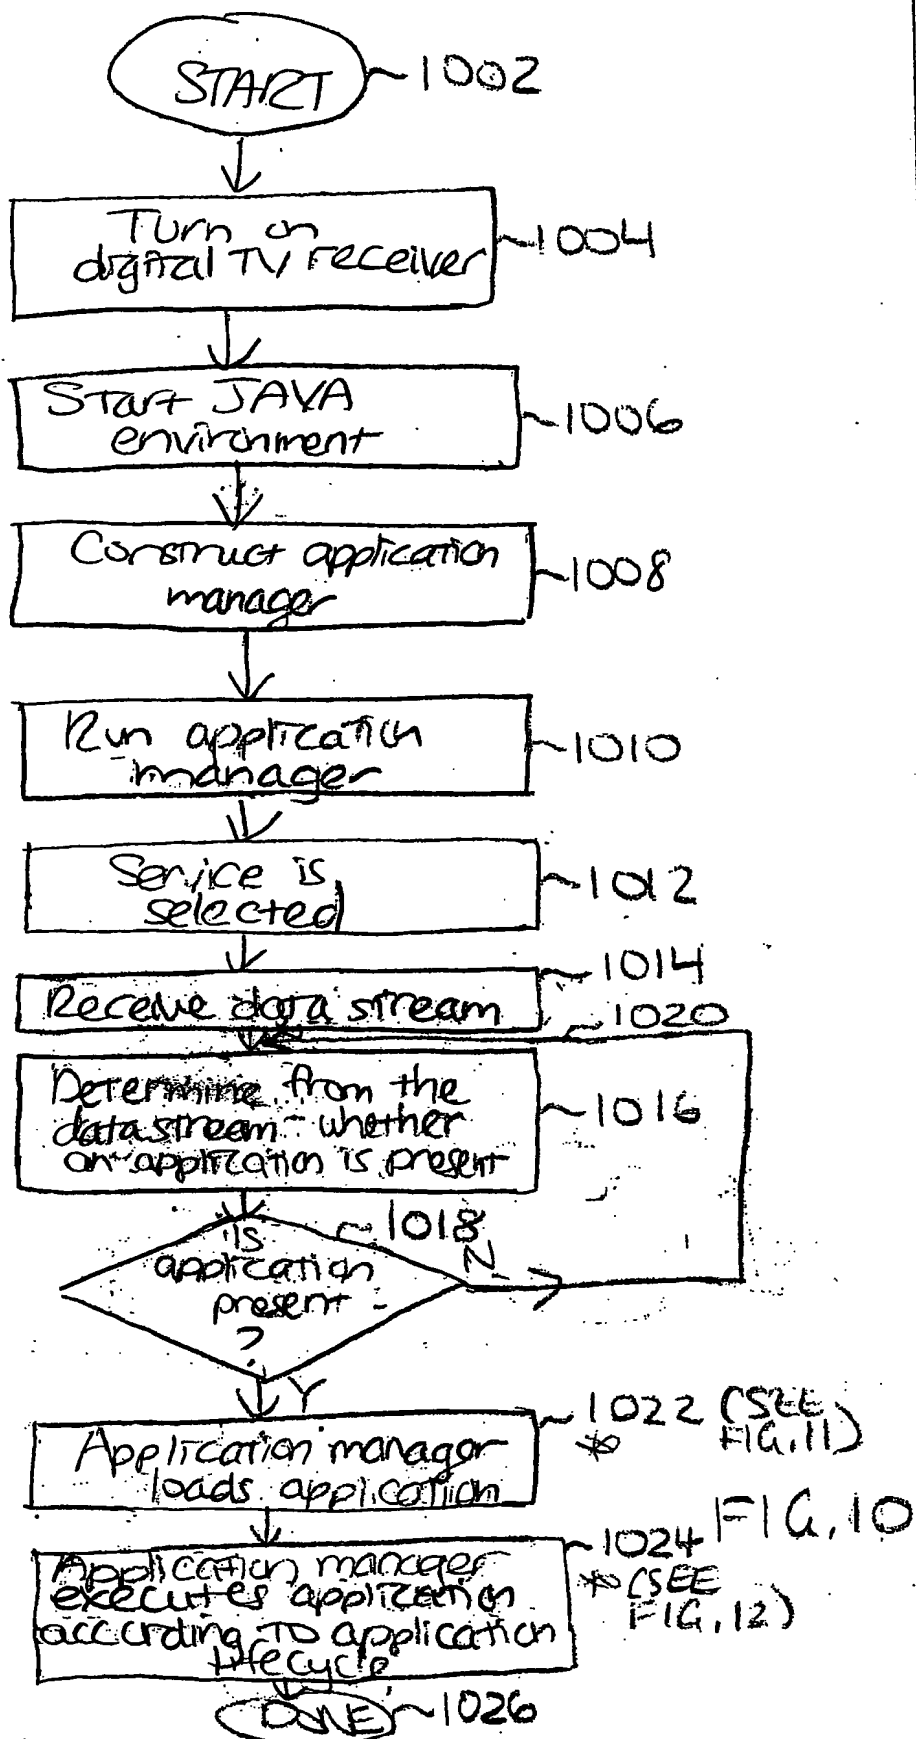 START 1002
Turn on
digital TV receiver 1004
Start JAVA
environment 1006
Construct application
manager 1008
Run application
manager 1010
Service is
selected 1012
1014
Receive data stream
1020
Determine from the
data stream whether
an application is present 1016
1018
Is
application
present
?
N
Y
Application manager
loads application
1022 (SEE
* FIG. 11)
FIG. 10
Application manager
executes application
according to application
lifecycle
1024
* (SEE
FIG. 12)
DONE 1026